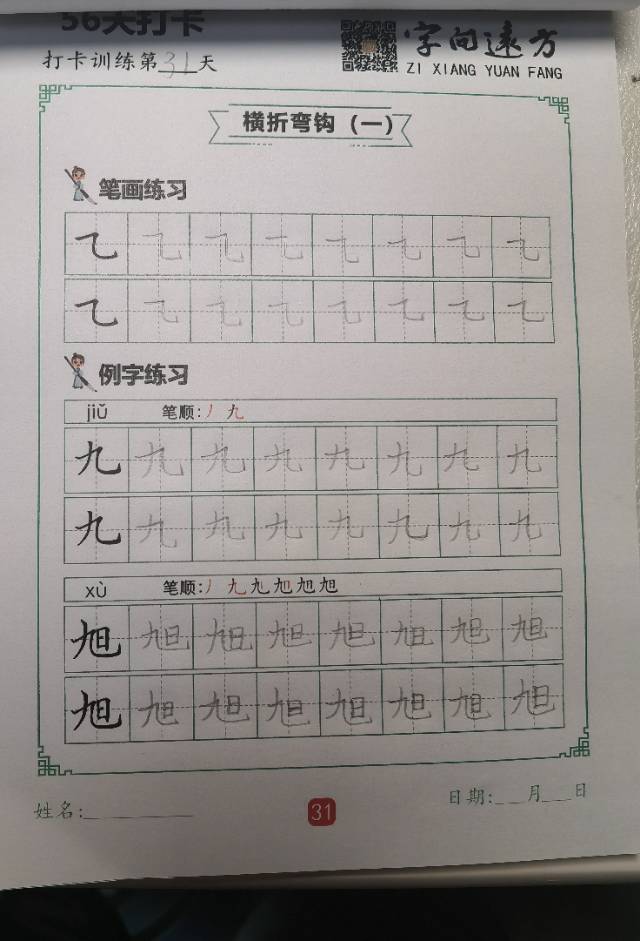 56天打卡
打卡训练第31天
字向远方
ZI XIANG YUAN FANG
横折弯钩（一）
笔画练习
乁乁乁乁乁乁乁乁
乁乁乁乁乁乁乁乁
例字练习
jiǔ 笔顺:丿九
九九九九九九九九
九九九九九九九九
xù 笔顺:丿九九旭旭旭
旭旭旭旭旭旭旭旭
旭旭旭旭旭旭旭旭
姓名:
31
日期:__月__日